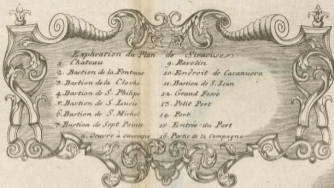 Explication du Plan de Siracuse
1. Chateau
2. Bastion de la Fontaine
3. Bastion de la Cloche
4. Bastion de S. Philipe
5. Bastion de S. Lucie
6. Bastion de S. Michel
7. Bastion de Sept Pointe
8. Oeuvre à courogne
9. Ravelin
10. Endroit de Casanueva
11. Bastion de S. Iean
12. Grand Fossé
13. Petit Port
14. Port
15. Entrée du Port
16. Partie de la Campagne